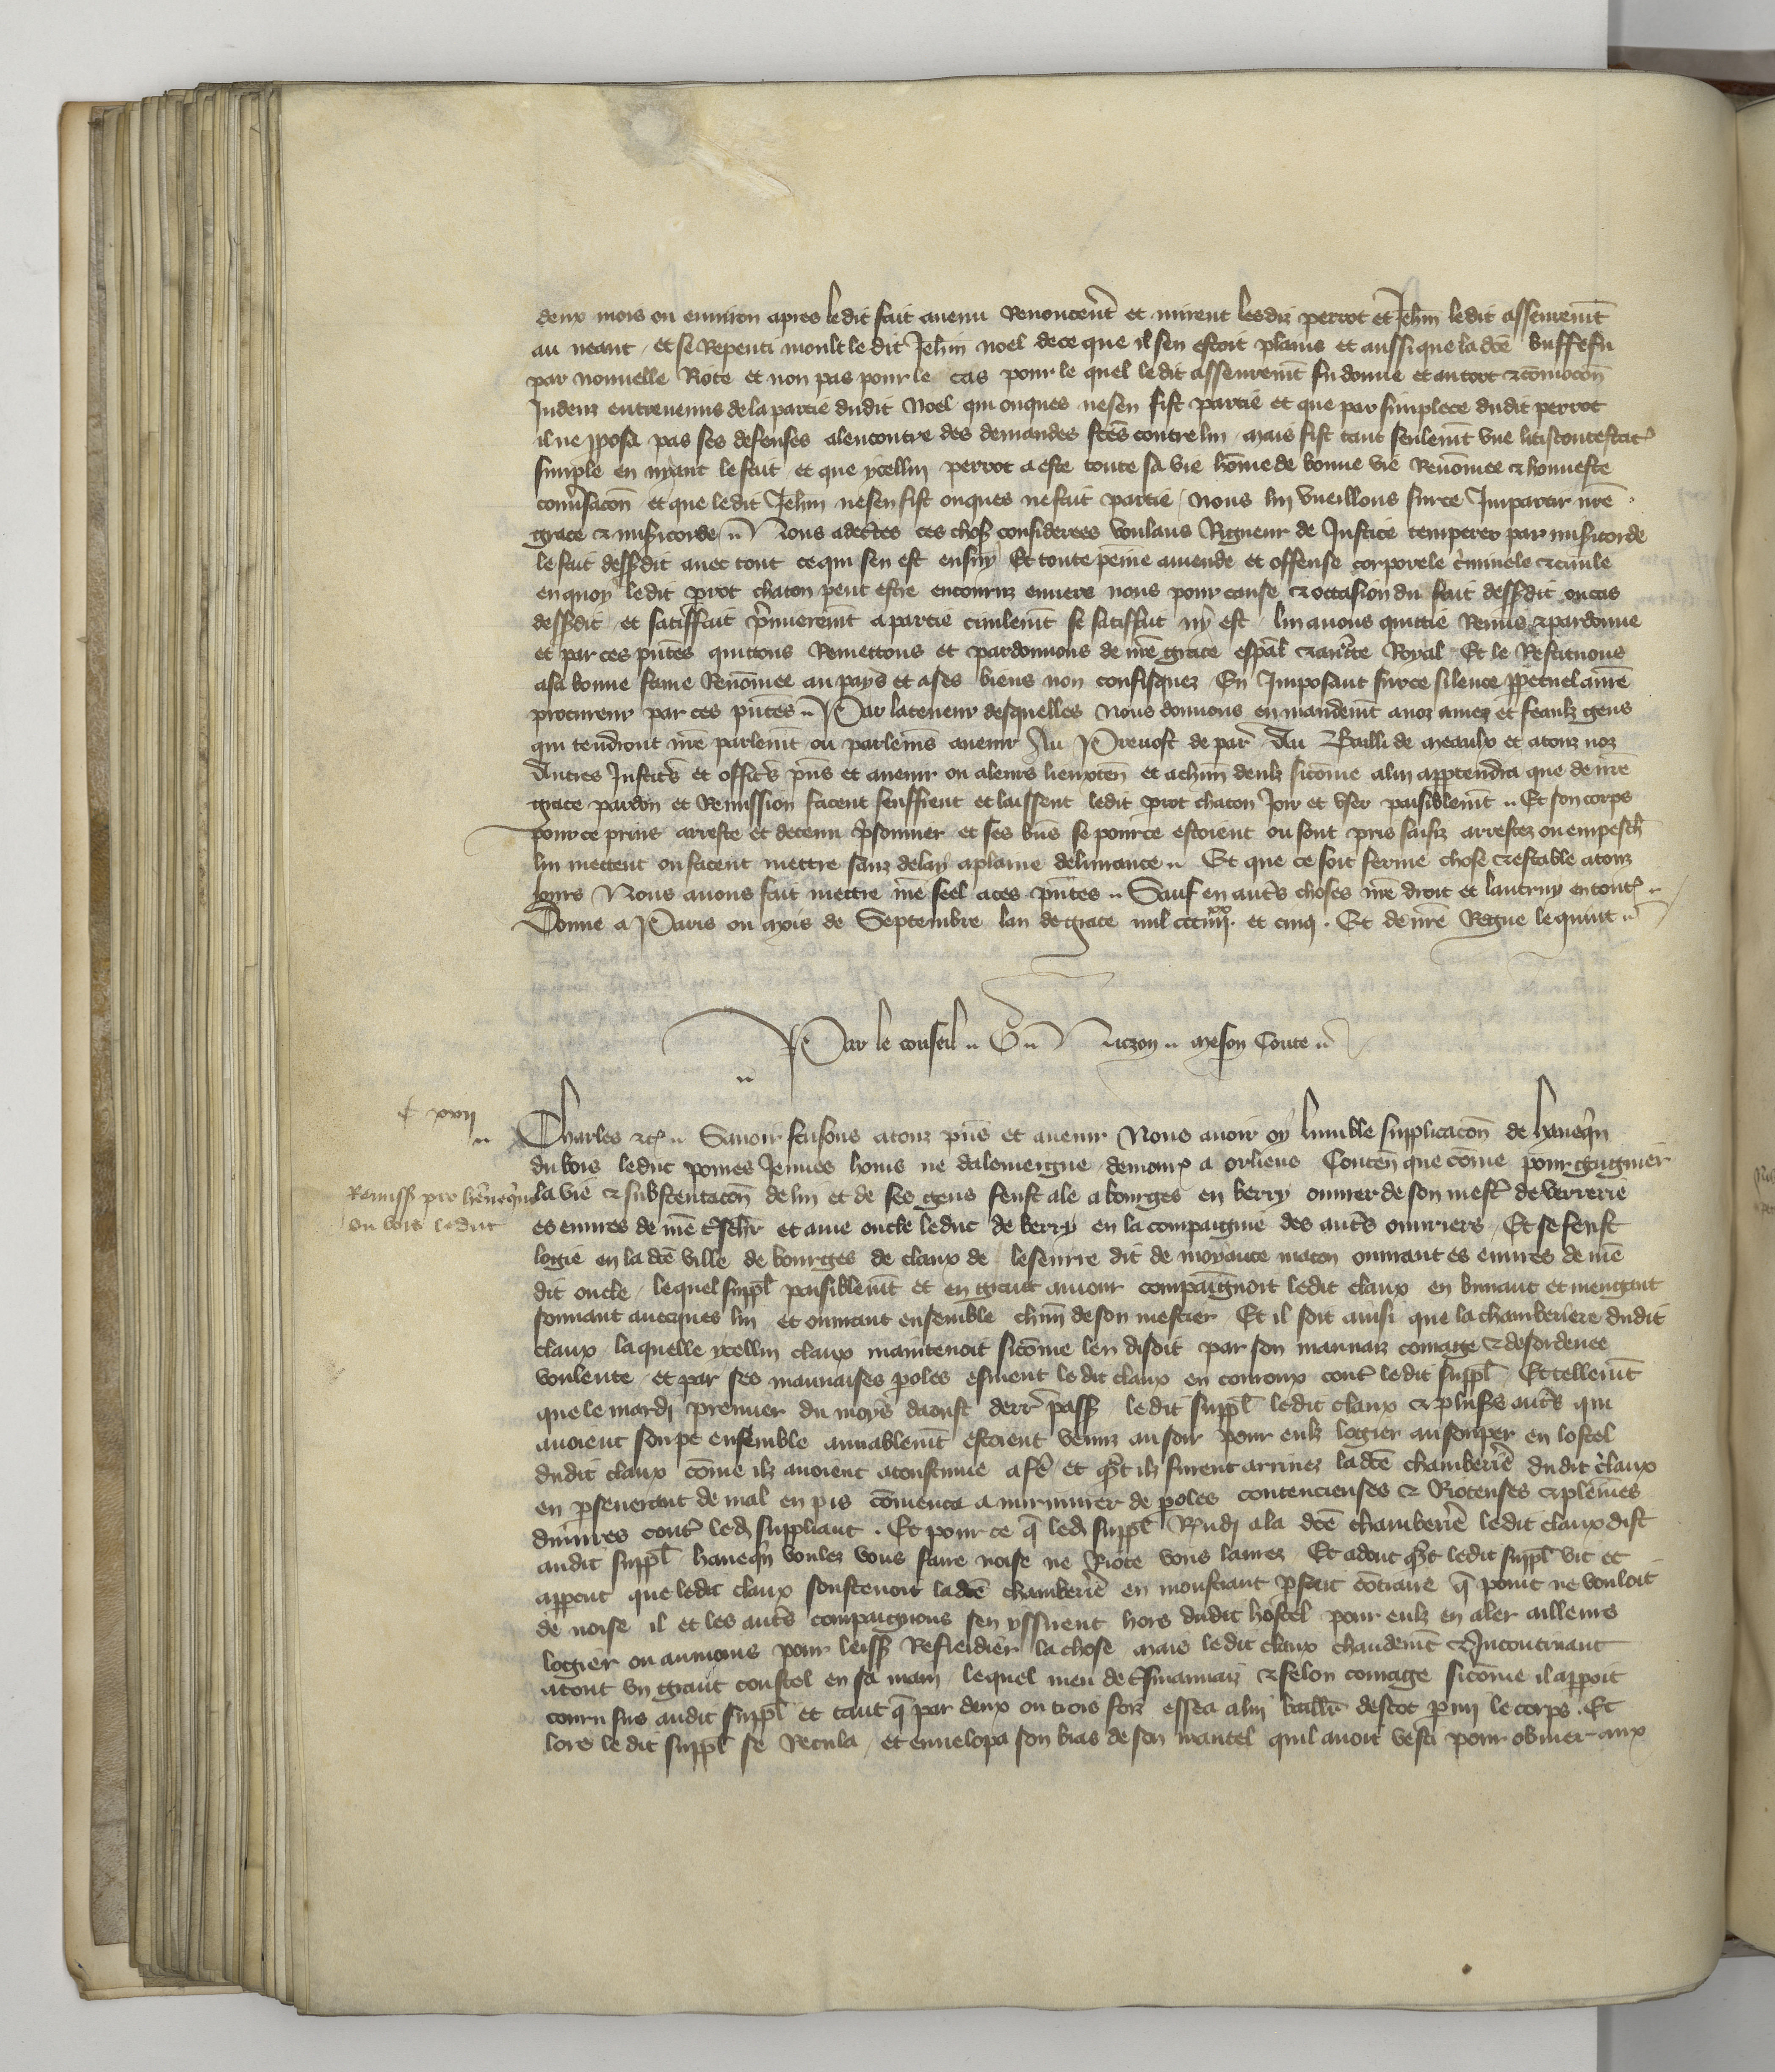 deux mois ou environ apres ledit fait avenu Renoncerēt et mirent lesdiz perrot et Jehan ledit asseuremēt
au neant / et se Repenti moult le dit Jehan noel de ce que il sen estoit plains et aussi que la dcē buffe fu
par nouvelle Riote et non pas pour le cas pour le quel ledit asseuremēt fu donne et
entrevenus de la partie dudit Noel qui onques ne sen fist partie et que par simplece dudit perrot
il ne pposa pas ses defenses alencontre des demandes fcēs contre lui / mais fist tant seulemēt une litiscontestat
simple en nyant le fait / et que ycellui perrot a este toute sa vie hōme de bonne vie Renōmee & honneste
cōvsacōn et que ledit Jehan ne sen fist onques ne fait partie / nous lui vueillons sur ce Impartir nrē
grace & misicorde // Nous adectes ces choses considerees voulans Rigueur de Justice temperer par misicorde
le fait dessusdit avec tout ce qui sen est ensuy Et toute peine amende et offense corporele criminele & civile
en quoy ledit prot chaton peut estre encouruz envers nous pour cause & occasion du fait dessusdit ou cas
dessusdit et satisffait p̄mieremēt a partie civilemēt se satisffait ny est / lui avons quittie Remis & pardonne
et par ces pn̄tes quittons Remettons et pardonnons de nrē grace esp̄al & auctte Royal Et le Restituons
a sa bonne fame Renōmee au pays et a ses biens non confisquez En Imposant sur ce silence ppetuel a nrē
procureur par ces pn̄tes // Par la teneur desquelles Nous donnons en mandemēt a noz amez et feaulx gens
qui tendront nrē parlemēt ou parlemēs avenir Au Prevost de par Au Bailli de meaulx et a touz noz
Autres Justicrs et officrs pn̄s et avenir ou a leurs lieuxten̄ et a chūn deulx sicōme a lui apptendra que de nrē
grace pardon et Remission facent seuffrent et laissent ledit prot chaton Joir et user paisiblemēt // Et son corps
pour ce prins arreste et detenu p̄sonnier et ses bn̄s se pour ce estoient ou sont pris saisiz arrestez ou empesch
lui mettent ou facent mettre sanz delay a plaine delivrance // Et que ce soit ferme chose & estable a touz
jours Nous avons fait mettre nrē seel a ces pn̄tes // Sauf en autrs choses nrē droit et lautruy en tout
Donne a Paris ou mois de Septembre lan de grace mil ccc iiijxx et cinq . Et de nrē Regne le quint //
Par le conseil // G // meson Conte //
xvij
Remiss pro hēnequin
du bois leduc
Charles &c // Savoir faisons a touz pn̄s et avenir Nous avoir oy lumble supplicacōn de haneqin
du bois leduc povres Jeunes homs ne dalemaigne demour a orliens Conten̄ que cōme pour gaignier
la vie & substentacōn de lui et de ses gens feust ale a bourges en berry ouvrer de son mestr de verrerie
es euvres de nrē trschr et ame oncle le duc de berry en la compaignie des autrs ouvriers / Et se feust
logie en la dcē ville de bourges de claux de dit de moyance macon ouvrant es euvres de nrē
dit oncle / lequel suppl paisiblemēt et en grant amour compaignoit ledit claux en buvant et mengant
avecques lui et ouvrant ensemble chūn de son mestier Et il soit ainsi que la chamberiere dudit
claux laquelle ycellui claux maintenoit sicōme len disoit par son mauvaiz courage & desordenee
voulente / et par ses mauvaises poles esmeut le dit claux en courroux contr ledit suppl Et tellemēt
que le mardi premier du moys daoust derr pass ledit suppl ledit claux & plusrs autrs qui
avoient soupe ensemble amiablemēt estoient venuz au soir pour eulx logier au souper en lostel
dudit claux cōme ilz avoient acoustume a fr et qt ilz furent arrivez la dcē chamberiē dudit claux
en pseverant de mal en pis cōmenca a murmurer de poles contencieuses & Rioteuses & plenes
dinjures contr led suppliant . Et pour ce q led suppl Rndi a la dcē chamberiē ledit claux dist
audit suppl haneqin voulez vous faire noise ne Riote vous lairez Et adonc qt ledit suppl vit et
appcut que ledit claux soustenoit la dcē chamberiē en monstrant p fait cōtraire q point ne vouloit
de noise il et les autrs compaignons sen yssirent hors dudit hostel pour eulx en aler ailleurs
logier ou aumoins pour leiss Refreidier la chose mais ledit claux chaudemēt & Incontinant
atout un grant coustel en sa main lequel meu de trsmauvaiz & felon courage sicōme il appoit
couru sus audit suppl et tant q par deux ou trois foiz essea a lui baillr destoc pmi le corps . Et
lors le dit suppl se Recula / et envelopa son bras de son mantel quil avoit vestu pour obvier aux